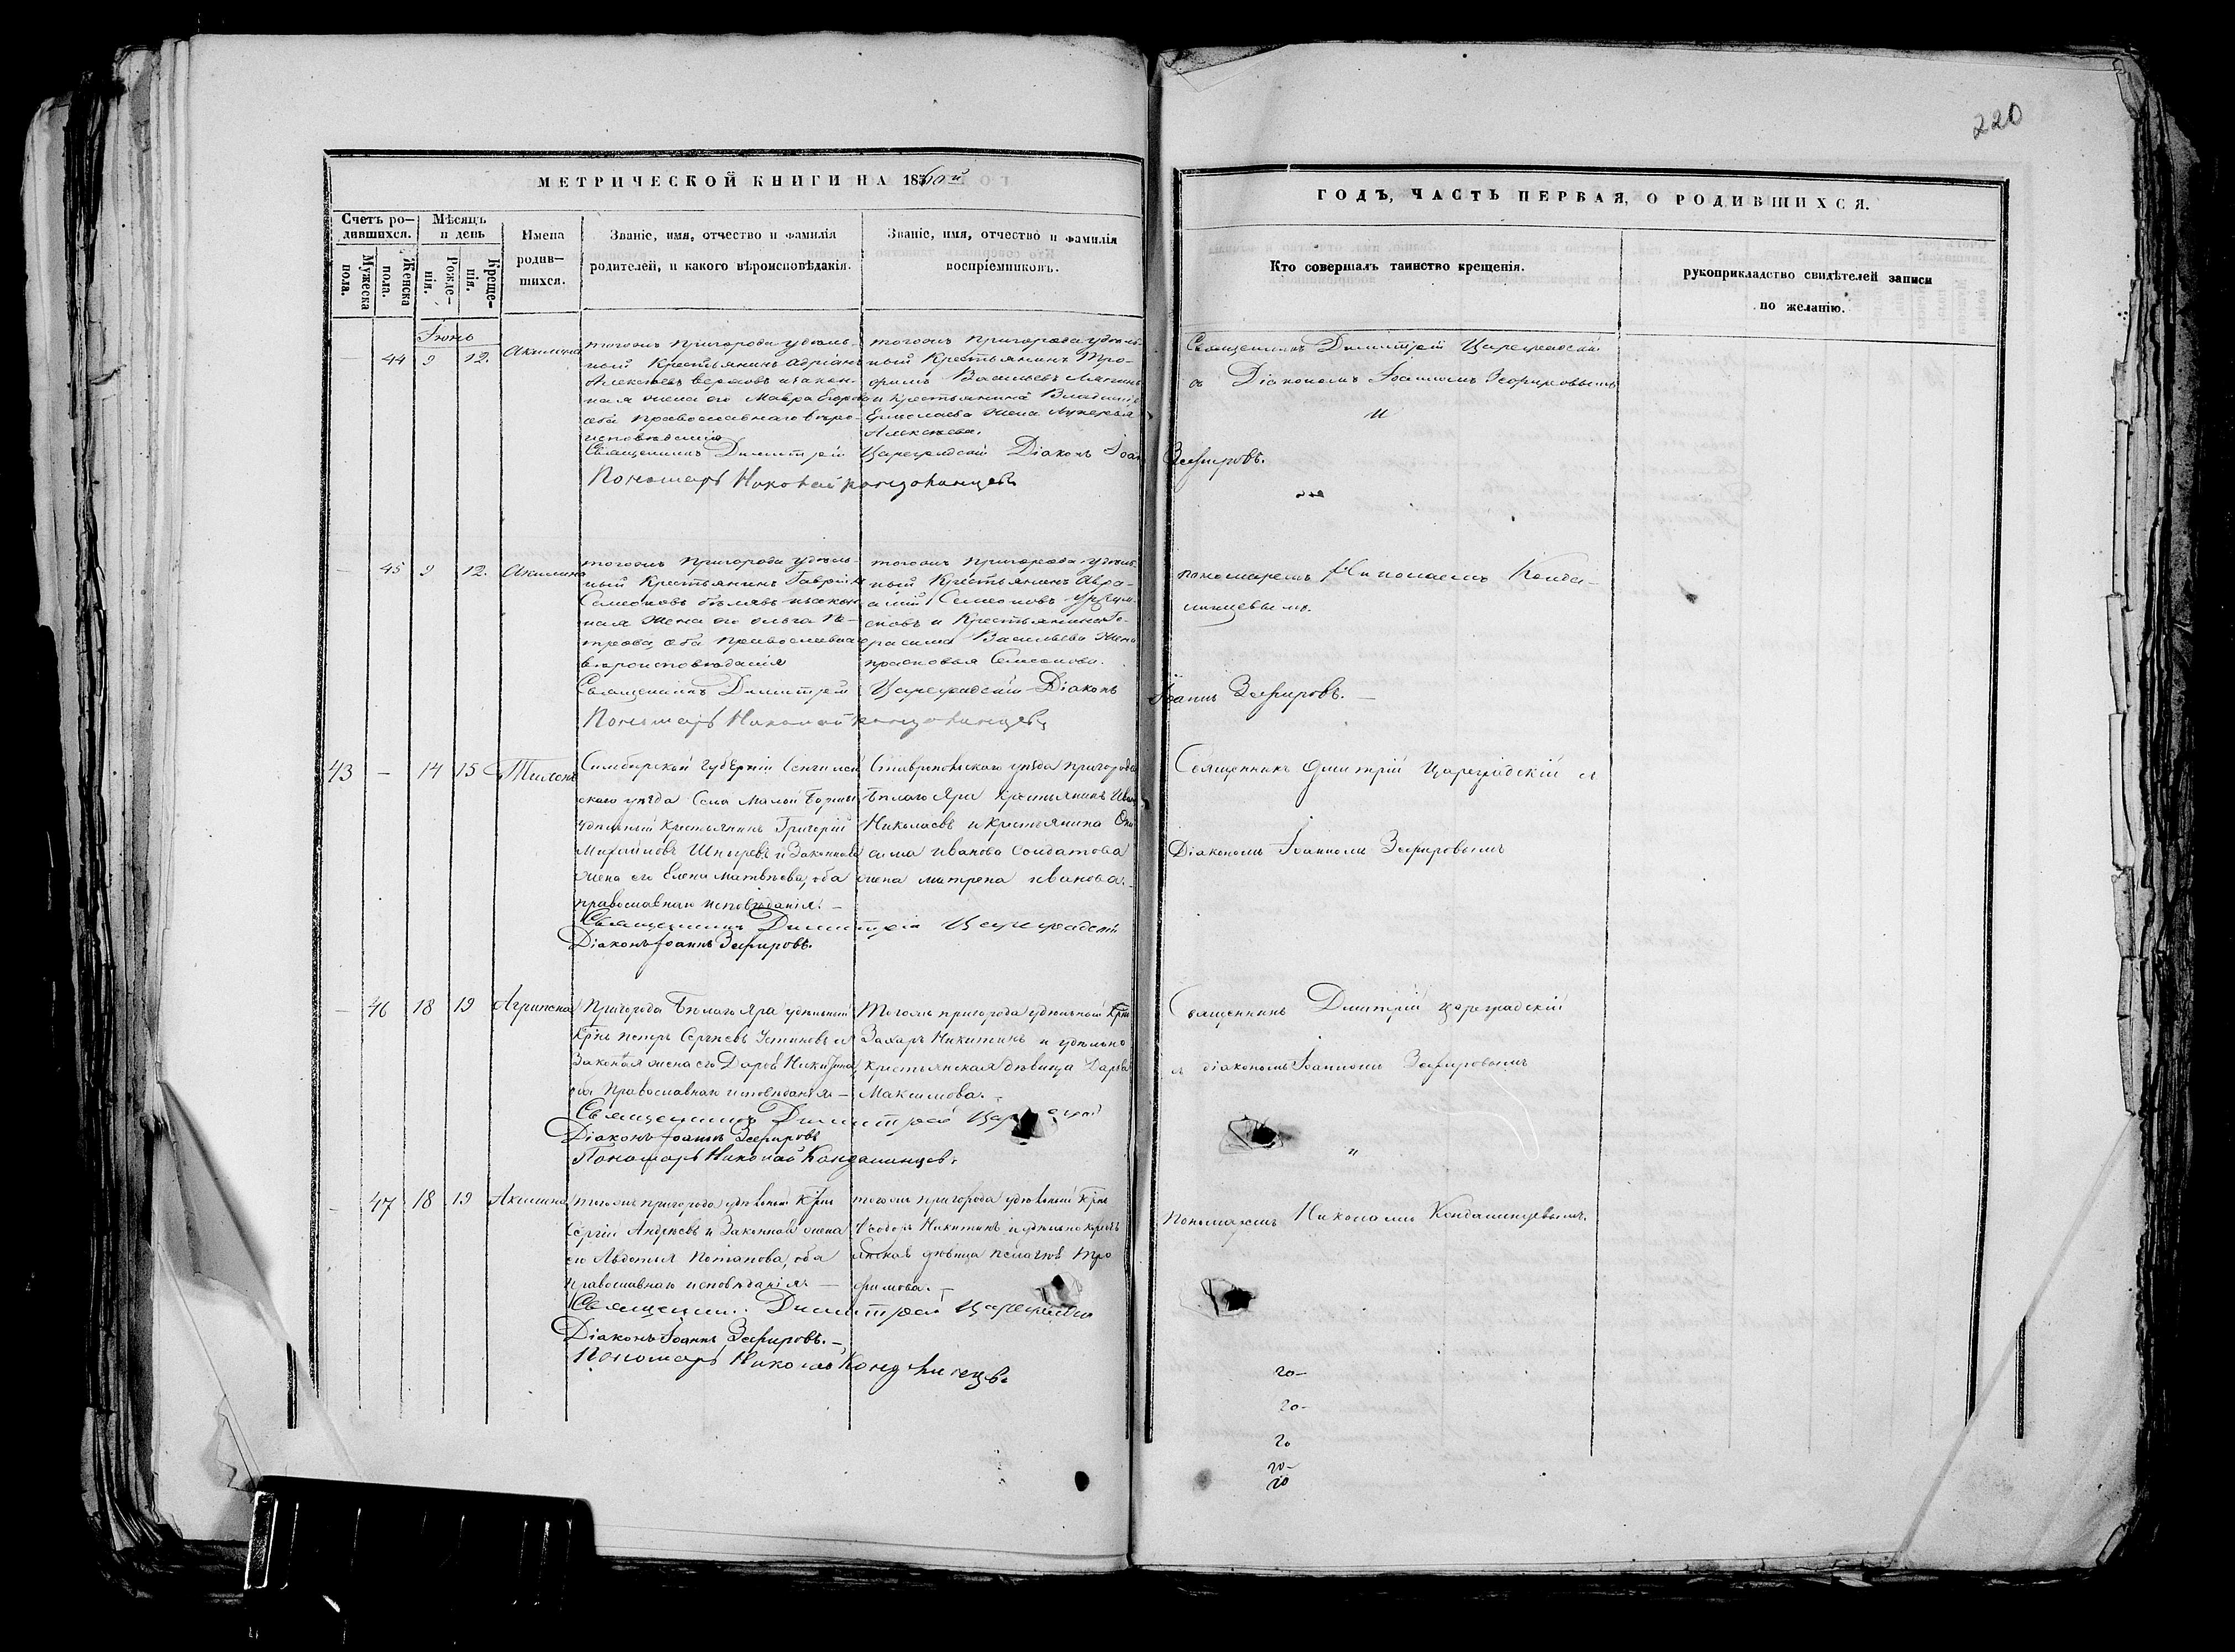 220
МЕТРИЧЕСКОЙ КНИГИ НА 1860й
ГОДЪ, ЧАСТЬ ПЕРВАЯ, О РОДИВШИХСЯ.
Счетъ ро-
дившихся.
Мужеска
пола.
Женска
пола.
Мѣсяцъ
и день
Рожде-
нія.
Креще-
нія.
Имена
родив-
шихся.
Званіе, имя, отчество и фамилія
родителей, и какого вѣроисповѣданія.
Званіе, имя, отчество и фамилія
воспріемниковъ.
Кто совершалъ таинство крещенія.
рукоприкладство свидѣтелей записи
по желанію.
Іюнь
— 44 9 12. Акилина
тогожъ пригорода удѣль-
ный Крестьянинъ Адріанъ
Алексѣевъ и закон-
ная жена его Мавра
оба православнаго вѣро-
исповѣданія
тогожъ пригорода удѣль-
ный Крестьянинъ Тро-
фимъ Васильевъ
и крестьянина
Ермолаева жена Лукерья
Алексѣева.
Священникъ Димитрій Цареградскій
съ Діакономъ Іоанномъ Зефировымъ
и
Священникъ Димитрій Цареградскій Діаконъ Іоан
Зефировъ.
Пономарь Николай Кондолинцевъ
— 45 9 12. Акилина
тогожъ пригорода удѣль-
ный Крестьянинъ Гавріилъ
Семеоновъ и закон
ная жена его Ольга Пе-
трова, оба православнаго
вѣроисповѣданія
тогожъ пригорода удѣль-
ный Крестьянинъ Авра-
амій Семеоновъ
и Крестьянина Ге-
расима Васильева жена
прасковья Семеонова.
пономаремъ Николаемъ Конда-
линцевымъ.
Священникъ Димитрій Цареградскій Діаконъ
Іоаннъ Зефировъ.—
Пономарь Николай Кондолинцевъ
43 — 14 15 Тихонъ
Симбирской Губерніи Сенгилей
скаго уѣзда Села Малой
удѣльный Крестьянинъ Григорій
Михайловъ и Законная
жена его Елена Матвѣева, оба
православнаго исповѣданія.—
Ставропольскаго уѣзда пригорода
Бѣлаго Яра Крестьянинъ Иванъ
Николаевъ и Крестьянина Они
сима Иванова Солдатова
жена матрена Иванова.—
Священникъ Дмитрій Цареградскій съ
Діакономъ Іоанномъ Зефировымъ
Священникъ Димитрій Цареградскій
Діаконъ Іоаннъ Зефировъ.
— 46 18 19 Агрипена
Пригорода Бѣлаго Яра удѣльный
Крнъ Петръ Сергѣевъ Устиновъ и
Законная жена его Дарья Никитина,
оба Православнаго исповѣданія.—
Тогожъ пригорода удѣльный Крнъ
Захаръ Никитинъ и удѣльно
крестьянская дѣвица Дарья
Максимова.—
Священникъ Дмитрій Цареградскій
съ діакономъ Іоанномъ Зефировымъ
Священникъ Димитрій
Діаконъ Іоаннъ Зефировъ
и
Пономарь Николай Кондалинцевъ.
— 47 18 19 Акилина
тогожъ пригорода удѣльный Крнъ
Сергій Андреевъ и Законная жена
его Авдотья Потапова, оба
православнаго исповѣданія.—
тогожъ пригорода удѣльный Крнъ
Ѳеодоръ Никитинъ и удѣльно крестъ
янская дѣвица Пелагія Тро
фимова.—
Пономаремъ Николаемъ Кондалинцевымъ.
Димитрій Цареградскій
Діаконъ Іоаннъ Зефировъ.—
Пономарь Николай Кондалинцевъ
20-
20-
20
20-
20